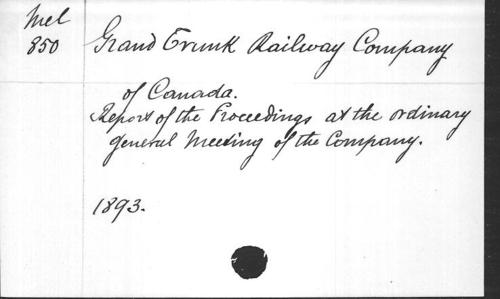 Mel
850
Grand Trunk Railway Company
of Canada.
Report of the Proceedings at the ordinary
general Meeting of the Company.
1893.